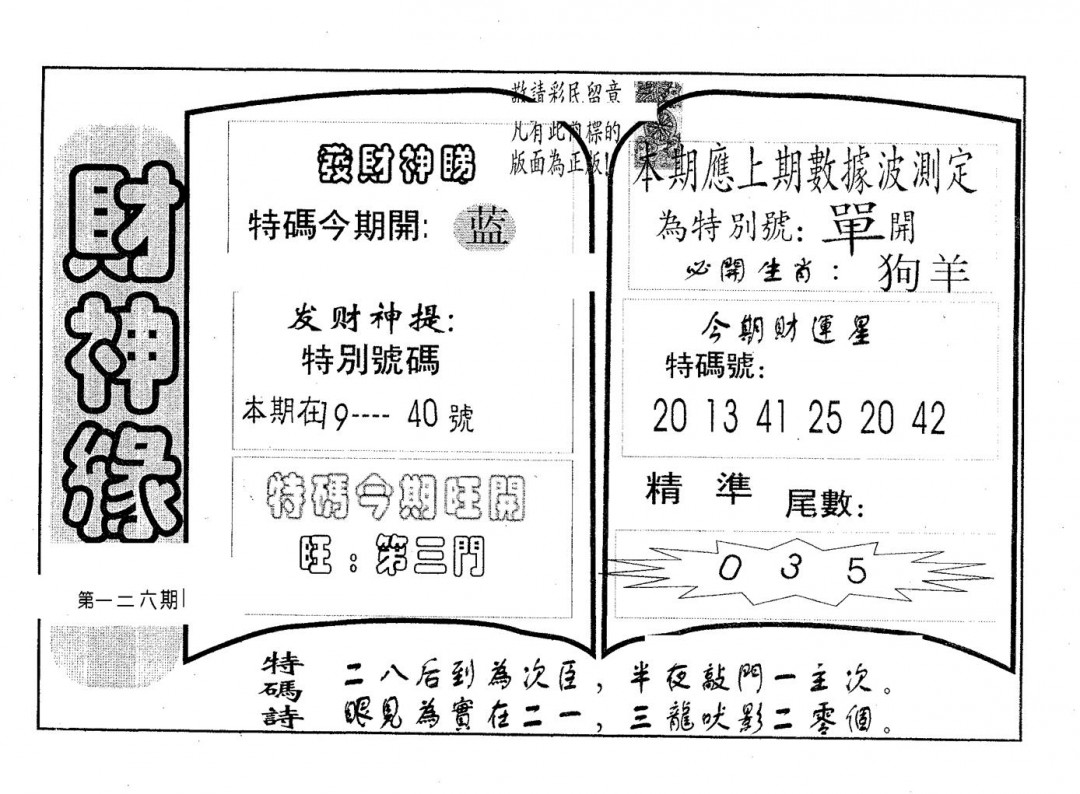 財神緣
第一二六期
敬請彩民留意
凡有此內標的
版面為正版!
發財神睇
特碼今期開: 蓝
发财神提:
特別號碼
本期在19---- 40號
特碼今期旺開
旺:第三門
本期應上期數據波測定
為特別號: 單開
必開生肖: 狗羊
今期財運星
特碼號:
20 13 41 25 20 42
精準 尾數:
0 3 5
特碼詩
二八后到為次臣,半夜敲門一主次。
眼見為實在二一,三龍吠影二零個。